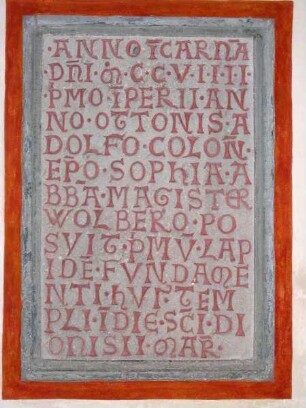 ·ANNO·ĪCARNA
DÑI·M̄·C·C·V·IIII·
P̄MO·ĪPERII·AN
NO·OTTONIS·A
DOLFO·COLOÑ·
EP̄O·SOPHIA·A
BBA·MAGISTER
WOLBERO·PO
SVIT·P̄MŪ·LAP
IDĒ·FVNDAME
NTI·HVI'·TEM
PLI·ĪDIE·SC̄I·DI
ONISII·MAR̄·